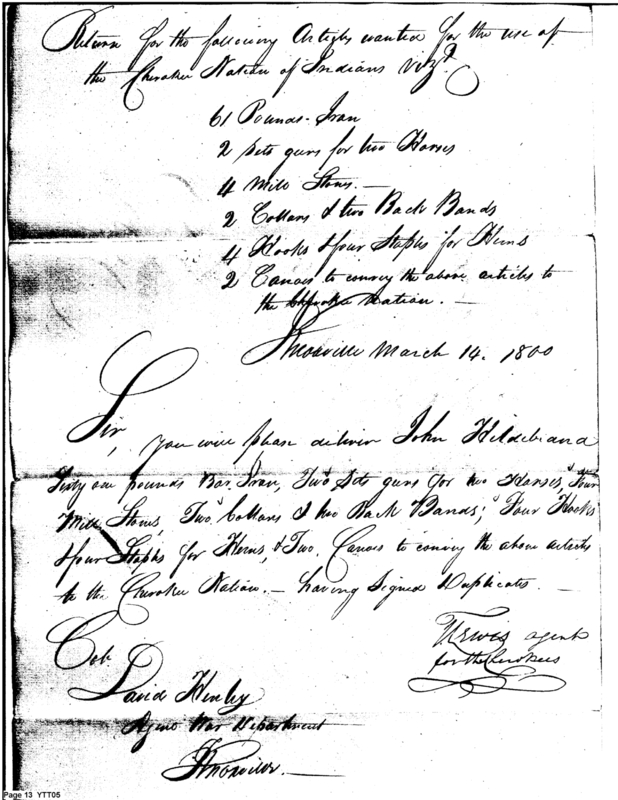 Return for the following Articles wanted for the use of
the Cherokee Nation of Indians vizt.
61 Pounds Iran
2 sets gears for two Horses
4 Mill Stones. —
2 Collars & two Back Bands
4 Hooks & four Staples for Hems
2 Canoes to convey the above articles to
the Cherokee Nation. —
Knoxville March 14. 1800
Sir,
you will please deliver John Hildebrand
Sixty one pounds Bar Iran, Two Sets gears for two Horses, Four
Mill Stones, Two Collars & two Back Bands; Four Hooks
& four Staples for Hems, & Two Canoes to convey the above articles
to the Cherokee Nation. — having signed Duplicates. —
agent
for the Cherokees
Colo
David Henley
Agent War Department
Knoxville. —
Page 13 YTT05